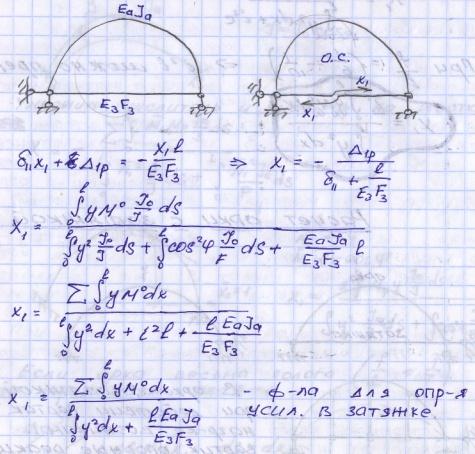 EaJa
E₃F₃
О.С.
x₁
x₁
δ₁₁x₁ + Δ₁p = - x₁l / E₃F₃ ⇒ x₁ = - Δ₁p / (δ₁₁ + l / E₃F₃)
X₁ = ∫₀ˡ y M⁰ J₀/J dS / (∫₀ˡ y² J₀/J dS + ∫₀ˡ cos²φ J₀/F dS + EaJa / E₃F₃ l)
x₁ = Σ ∫₀ˡ y M⁰ dx / (∫₀ˡ y² dx + i² l + l EaJa / E₃F₃)
x₁ = Σ ∫₀ˡ y M⁰ dx / (∫₀ˡ y² dx + l EaJa / E₃F₃) - ф-ла для опр-я
усил. в затяжке